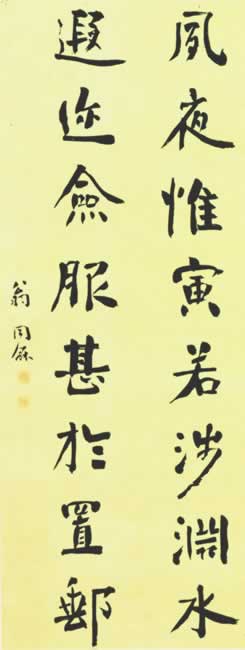 夙夜惟寅若涉淵水
遐迩僉服甚於置郵
翁同龢